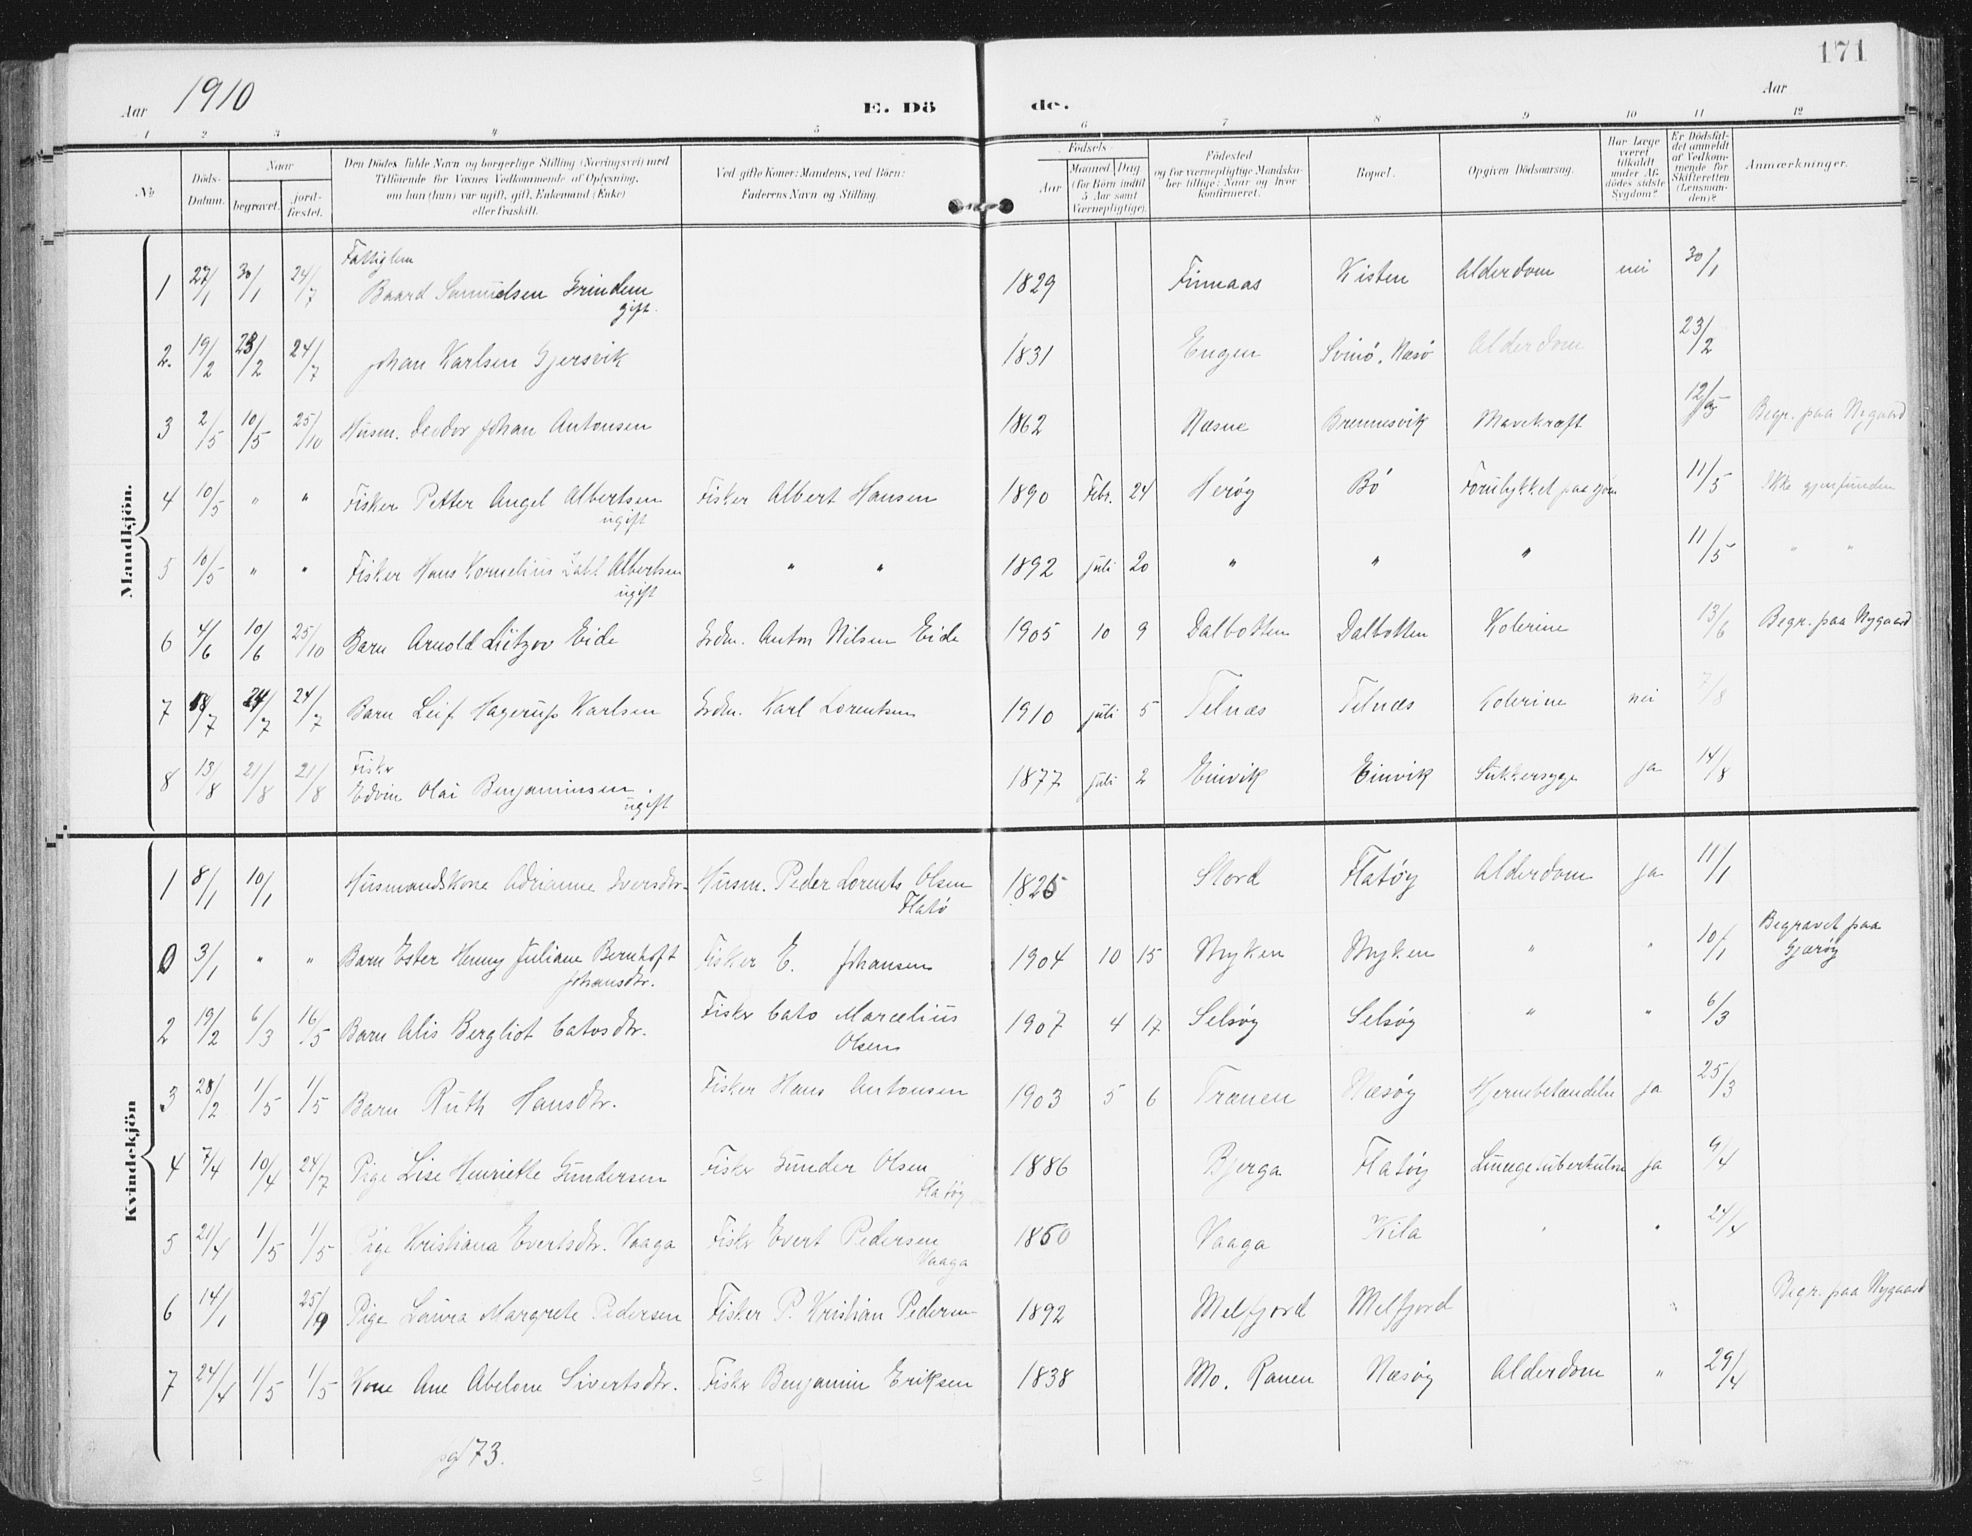 171
Aar 1910
E. Dö de.
Aar
1 2 3 4 5 6 7 8 9 10 11 12
No
Döds-Datum.
Naar
begravet.
jord-fæstet.
Den Dödes fulde Navn og borgerlige Stilling (Næringsvei) med
Tilföiende for Voxnes Vedkommende af Oplysning,
om han (hun) var ugift, gift, Enkemand (Enke)
eller fraskilt.
Ved gifte Koner: Mandens, ved Börn:
Faderens Navn og Stilling.
Födsels-
Aar
Maaned Dag
(for Börn indtil
5 Aar samt
Værnepligtige).
Födested
og for værnepligtige Mandska-
ber tillige: Naar og hvor
konfirmeret.
Bopæl.
Opgiven Dödsaarsag.
Har Læge
været
tilkaldt
under Af-
dödes sidste
Sygdom?
Er Dödsfal-
det anmeldt
af Vedkom-
mende for
Skifteretten
(Lensman-
den)?
Anmærkninger.
Mandkjön.
Fattiglem
1 27/1 30/1 24/7 Baard Samuelsen Grindem 1829 Finnaas Kisten Alderdom nei 30/1
gift.
2. 19/2 23/2 24/7 Johan Karlsen Gjersvik 1831 Engen Svinö, Næsö Alderdom 23/2
3 2/5 10/5 25/10 Husm. Johan Antonsen 1862 Næsne Brennesvik Mavekræft 12/5 Begr. paa Nygaard
4 10/5 " " Fisker Petter Angel Albertsen Fisker Albert Hansen 1890 Febr. 24 Herøy Bö Forulykket paa sjøen 11/5 Ikke gjenfunden
ugift
5 10/5 " " Fisker Hans Kornelius Albertsen " " 1892 juli 20 " " " 11/5 " "
ugift
6 4/6 10/6 25/10 Barn Arnold Lützov Eide Grdm. Anton Nilsen Eide 1905 10 9 Dalbotten Dalbotten Kolerine 13/6 Begr. paa Nygaard
7 18/7 24/7 24/7 Barn Leif Hagerup Karlsen Grdm. Karl Lorentsen 1910 juli 5 Telnæs Telnæs Kolerine nei 7/8
Fisker
8 13/8 21/8 21/8 Edvin Olai Benjaminsen. 1877 juli 2 Einvik Einvik Sukkersyge ja 14/8
ugift
Kvindekjön
1 8/1 10/1 Husmandskone Adrianne Iversdtr. Husm. Peder Lorents Olsen 1825 Stord Flatøy Alderdom ja 11/1
Flatö
0 3/1 " " Barn Ester Henny Juliane Bernhoft Fisker E. Johansen 1904 10 15 Myken Myken " " 10/1 Begravet paa
Johansdtr. Gjærøy
2 19/2 6/3 16/5 Barn Alis Bergliot Catosdtr. Fisker Cato Marcelius 1907 4 17 Selsøy Selsøy " " 6/3
Olsen
3 28/2 1/5 1/5 Barn Ruth Hansdtr. Fisker Hans Antonsen 1903 5 6 Trænen Næsøy Hjernebetændelse ja 25/3
4 7/4 10/4 24/7 Pige Lise Henriette Gundersen Fisker Gunder Olsen 1886 Bjerga Flatøy Lungetuberkulose ja 9/4
Flatøy
5 21/4 1/5 1/5 Pige Kristiana Evertsdtr. Vaaga Fisker Evert Pedersen 1850 Vaaga Kila " " 24/4
Vaaga
6 14/1 25/9 Pige Laura Margrete Pedersen Fisker P. Kristian Pedersen 1892 Melfjord Melfjord " Begr. paa Nygaard
7 24/4 1/5 1/5 Kone Ane Abelone Sivertsdtr. Fisker Benjamin Eriksen 1838 Mo, Ranen Næsøy Alderdom " 29/4
pg 173.